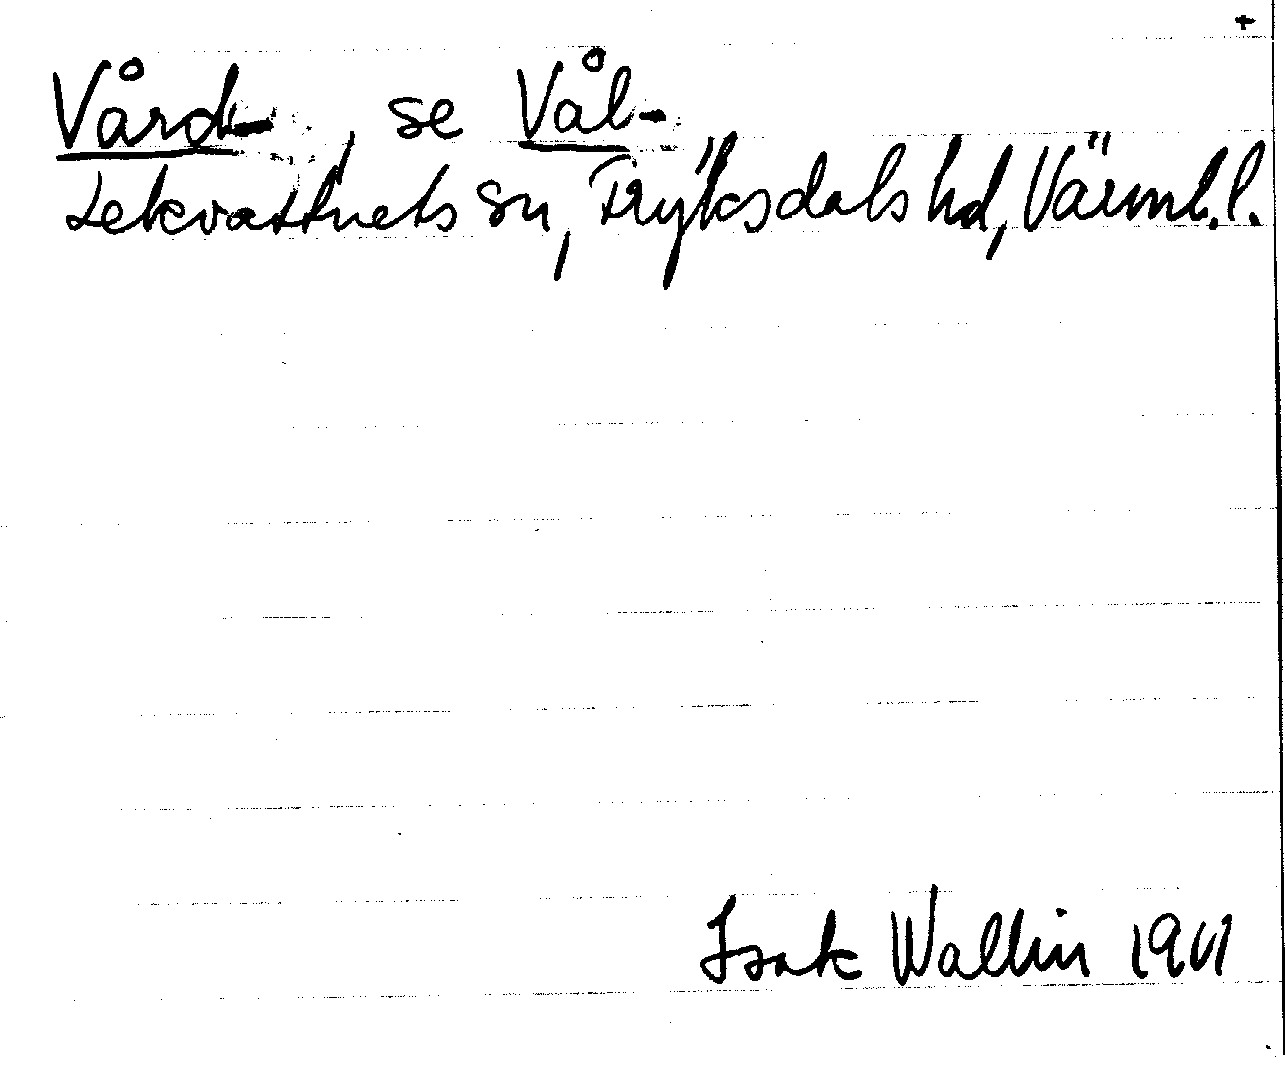 +
Vård-, se Vål-
Lekvattnets sn, Fryksdals hd, Värml. l.
Isak Wallin